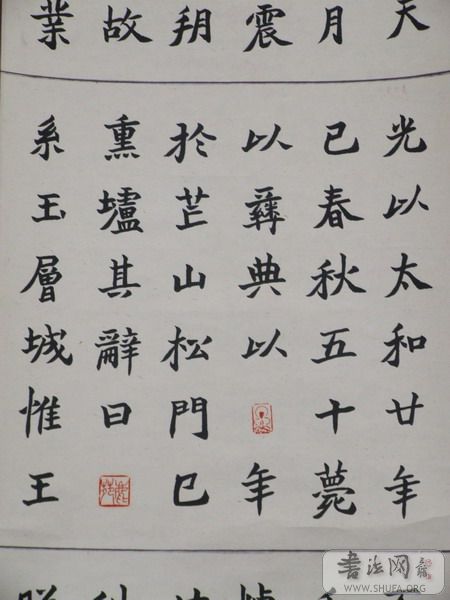 天
月
震
朔
故
業
光以太和廿年
已春秋五十薨
以彝典以年
於芒山松門巳
熏壚其辭曰
系玉層城惟王
書法网
WWW.SHUFA.ORG